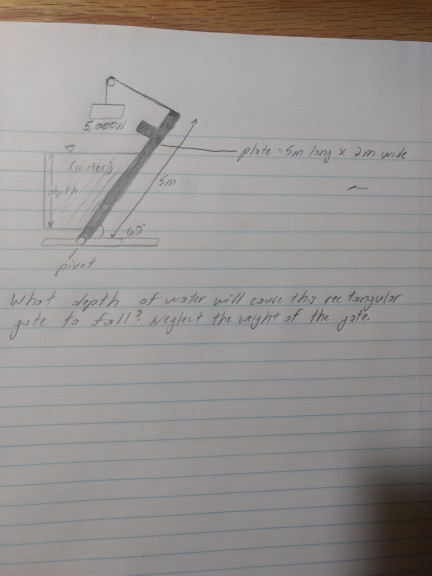 5,000N
plate = 5m long x 2m wide
(water)
5m
depth
60°
pivot
What depth of water will cause this rectangular
gate to fall? Neglect the weight of the gate.